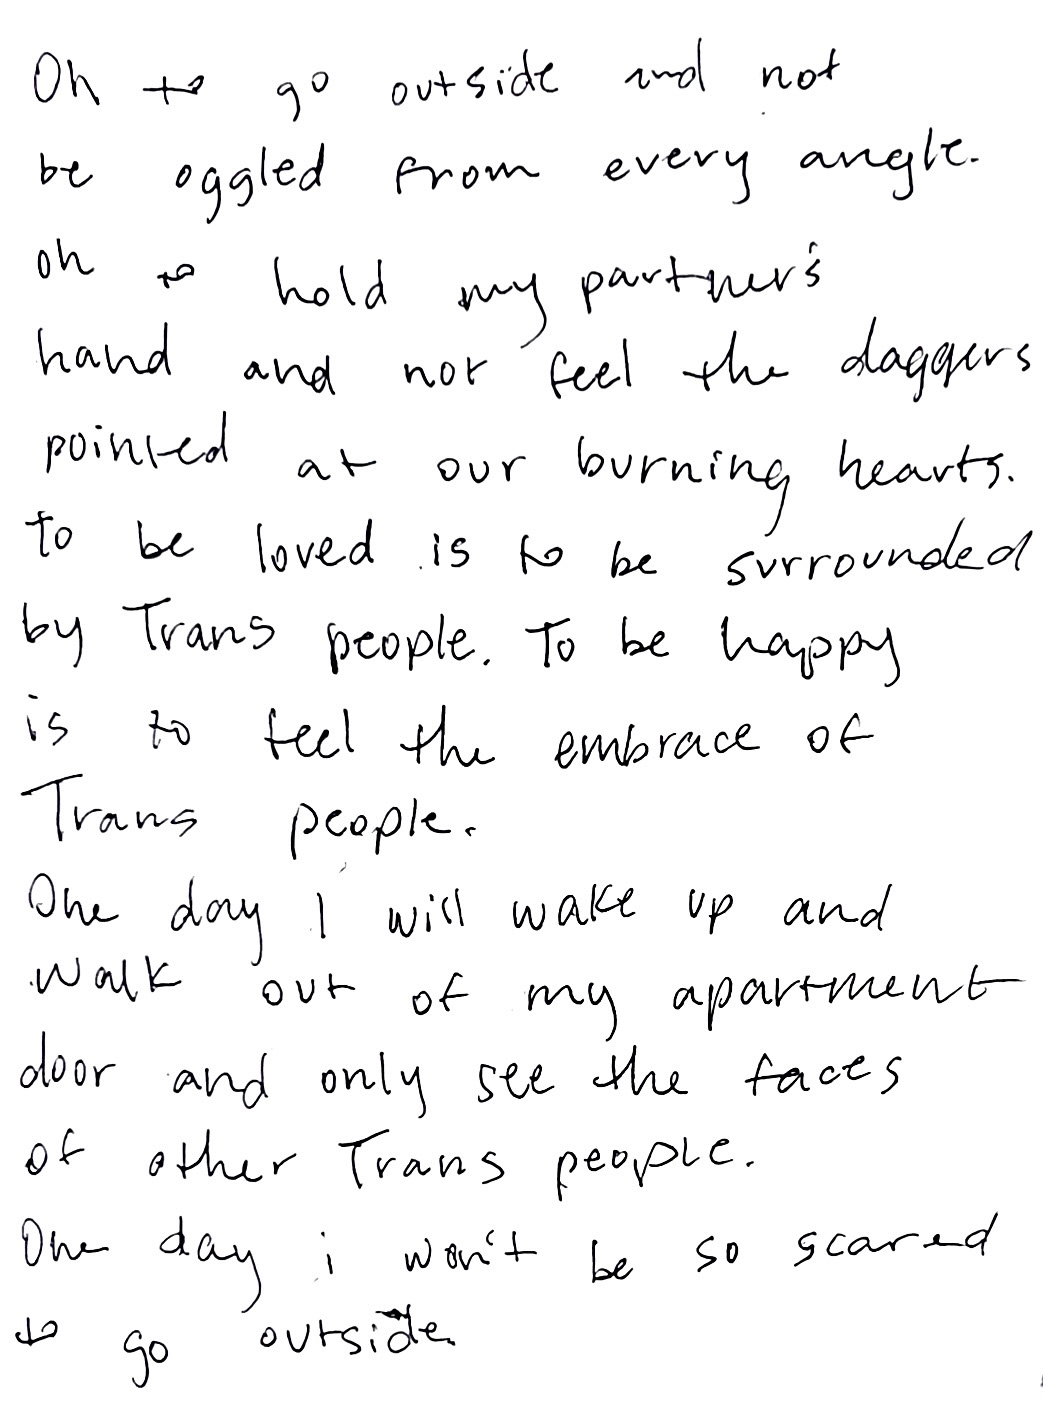 Oh to go outside and not
be oggled from every angle.
oh to hold my partner's
hand and not feel the daggers
pointed at our burning hearts.
To be loved is to be surrounded
by Trans people. To be happy
is to feel the embrace of
Trans people.
One day I will wake up and
walk out of my apartment
door and only see the faces
of other Trans people.
One day i won't be so scared
to go outside.